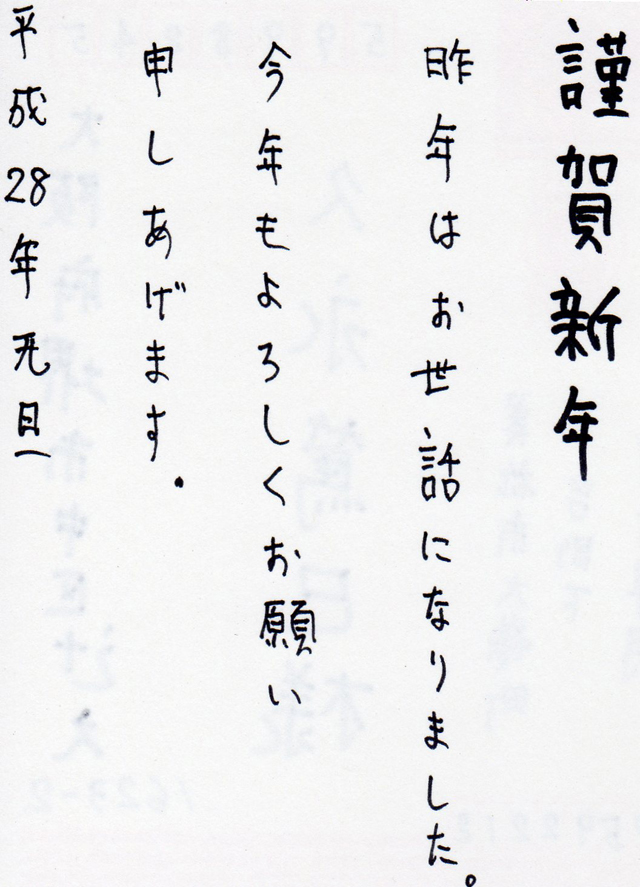 謹賀新年
昨年はお世話になりました。
今年もよろしくお願い
申しあげます.
平成28年元旦